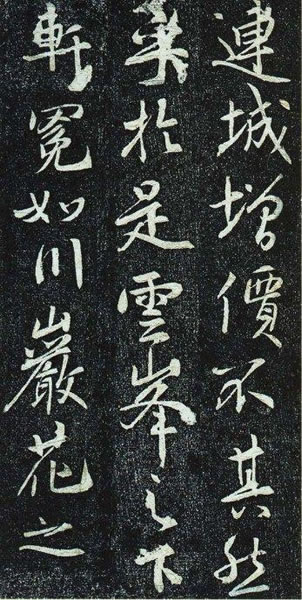 連城增價不其然
矣於是雲峯之下
軒冕如川巖花之